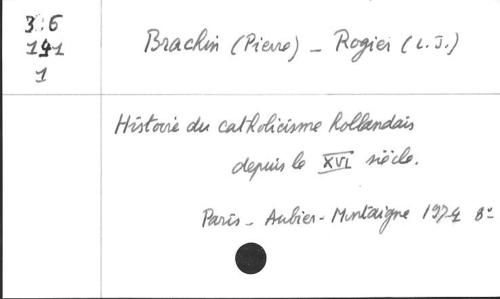 3.6
191
1
Brachin (Pierre) _ Rogier (L.J.)
Histoire du catholicisme hollandais
depuis le XVI siècle.
Paris _ Aubier-Montaigne 1974 8°